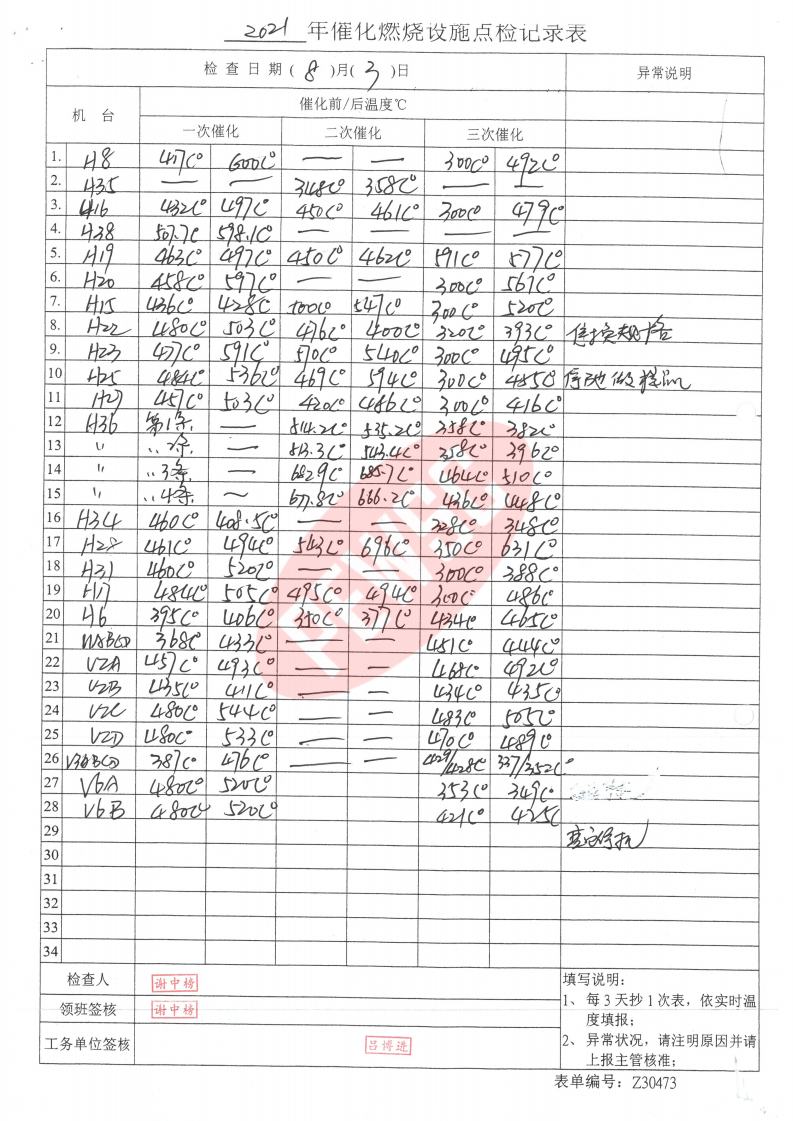 2021 年催化燃烧设施点检记录表
检查日期( 8 )月( 3 )日 异常说明
机 台 催化前/后温度℃
一次催化 二次催化 三次催化
1. H8 417C° 600C° — — 300C° 492C°
2. H35 — — 348C° 358C° — —
3. H16 432C° 497C° 450C° 461C° 300C° 479C°
4. H38 507.7C 598.1C° — — — —
5. H19 463C° 497C° 450C° 462C° 591C° 577C°
6. H20 458C° 597C° — — 300C° 567C°
7. H15 436C° 428C° 500C° 547C° 300C° 520C°
8. H22 480C° 503C° 476C° 400C° 320C° 393C°
9. H23 477C° 591C° 570C° 540C° 300C° 495C°
10 H25 484C° 536C° 469C° 594C° 300C° 485C°
11 H27 457C° 503C° 420C° 486C° 300C° 416C°
12 H36 第1条 — 814.2C° 535.2C° 358C° 382C°
13 " "2条 — 813.3C° 543.4C° 358C° 396C°
14 " "3条 — 682.9C° 685.7C° 464C° 510C°
15 " "4条 ~ 677.8C° 666.2C° 436C° 448C°
16 H34 460C° 408.5C° — — 328C° 348C°
17 H28 461C° 494C° 543C° 696C° 350C° 631C°
18 H31 460C° 520C° — — 300C° 388C°
19 H17 484C° 505C° 495C° 494C° 300C° 486C°
20 H6 395C° 406C° 350C° 377C° 434C° 465C°
21 368C° 433C° — — 451C° 444C°
22 V2A 457C° 493C° — — 468C° 492C°
23 V2B 435C° 411C° — — 434C° 435C°
24 V2C 480C° 544C° — — 483C° 505C°
25 V2D 480C° 533C° — — 470C° 489C°
26 V3@BCD 387C° 476C° — — 429/428C° 337/352C°
27 V6A 480C° 520C° 353C° 349C°
28 V6B 480C° 520C° 421C° 425C°
29
30
31
32
33
34
PFWSC
检查人 谢中榜
领班签核 谢中榜
工务单位签核 吕博进
填写说明：
1、 每 3 天抄 1 次表，依实时温
度填报；
2、 异常状况，请注明原因并请
上报主管核准；
表单编号：Z30473